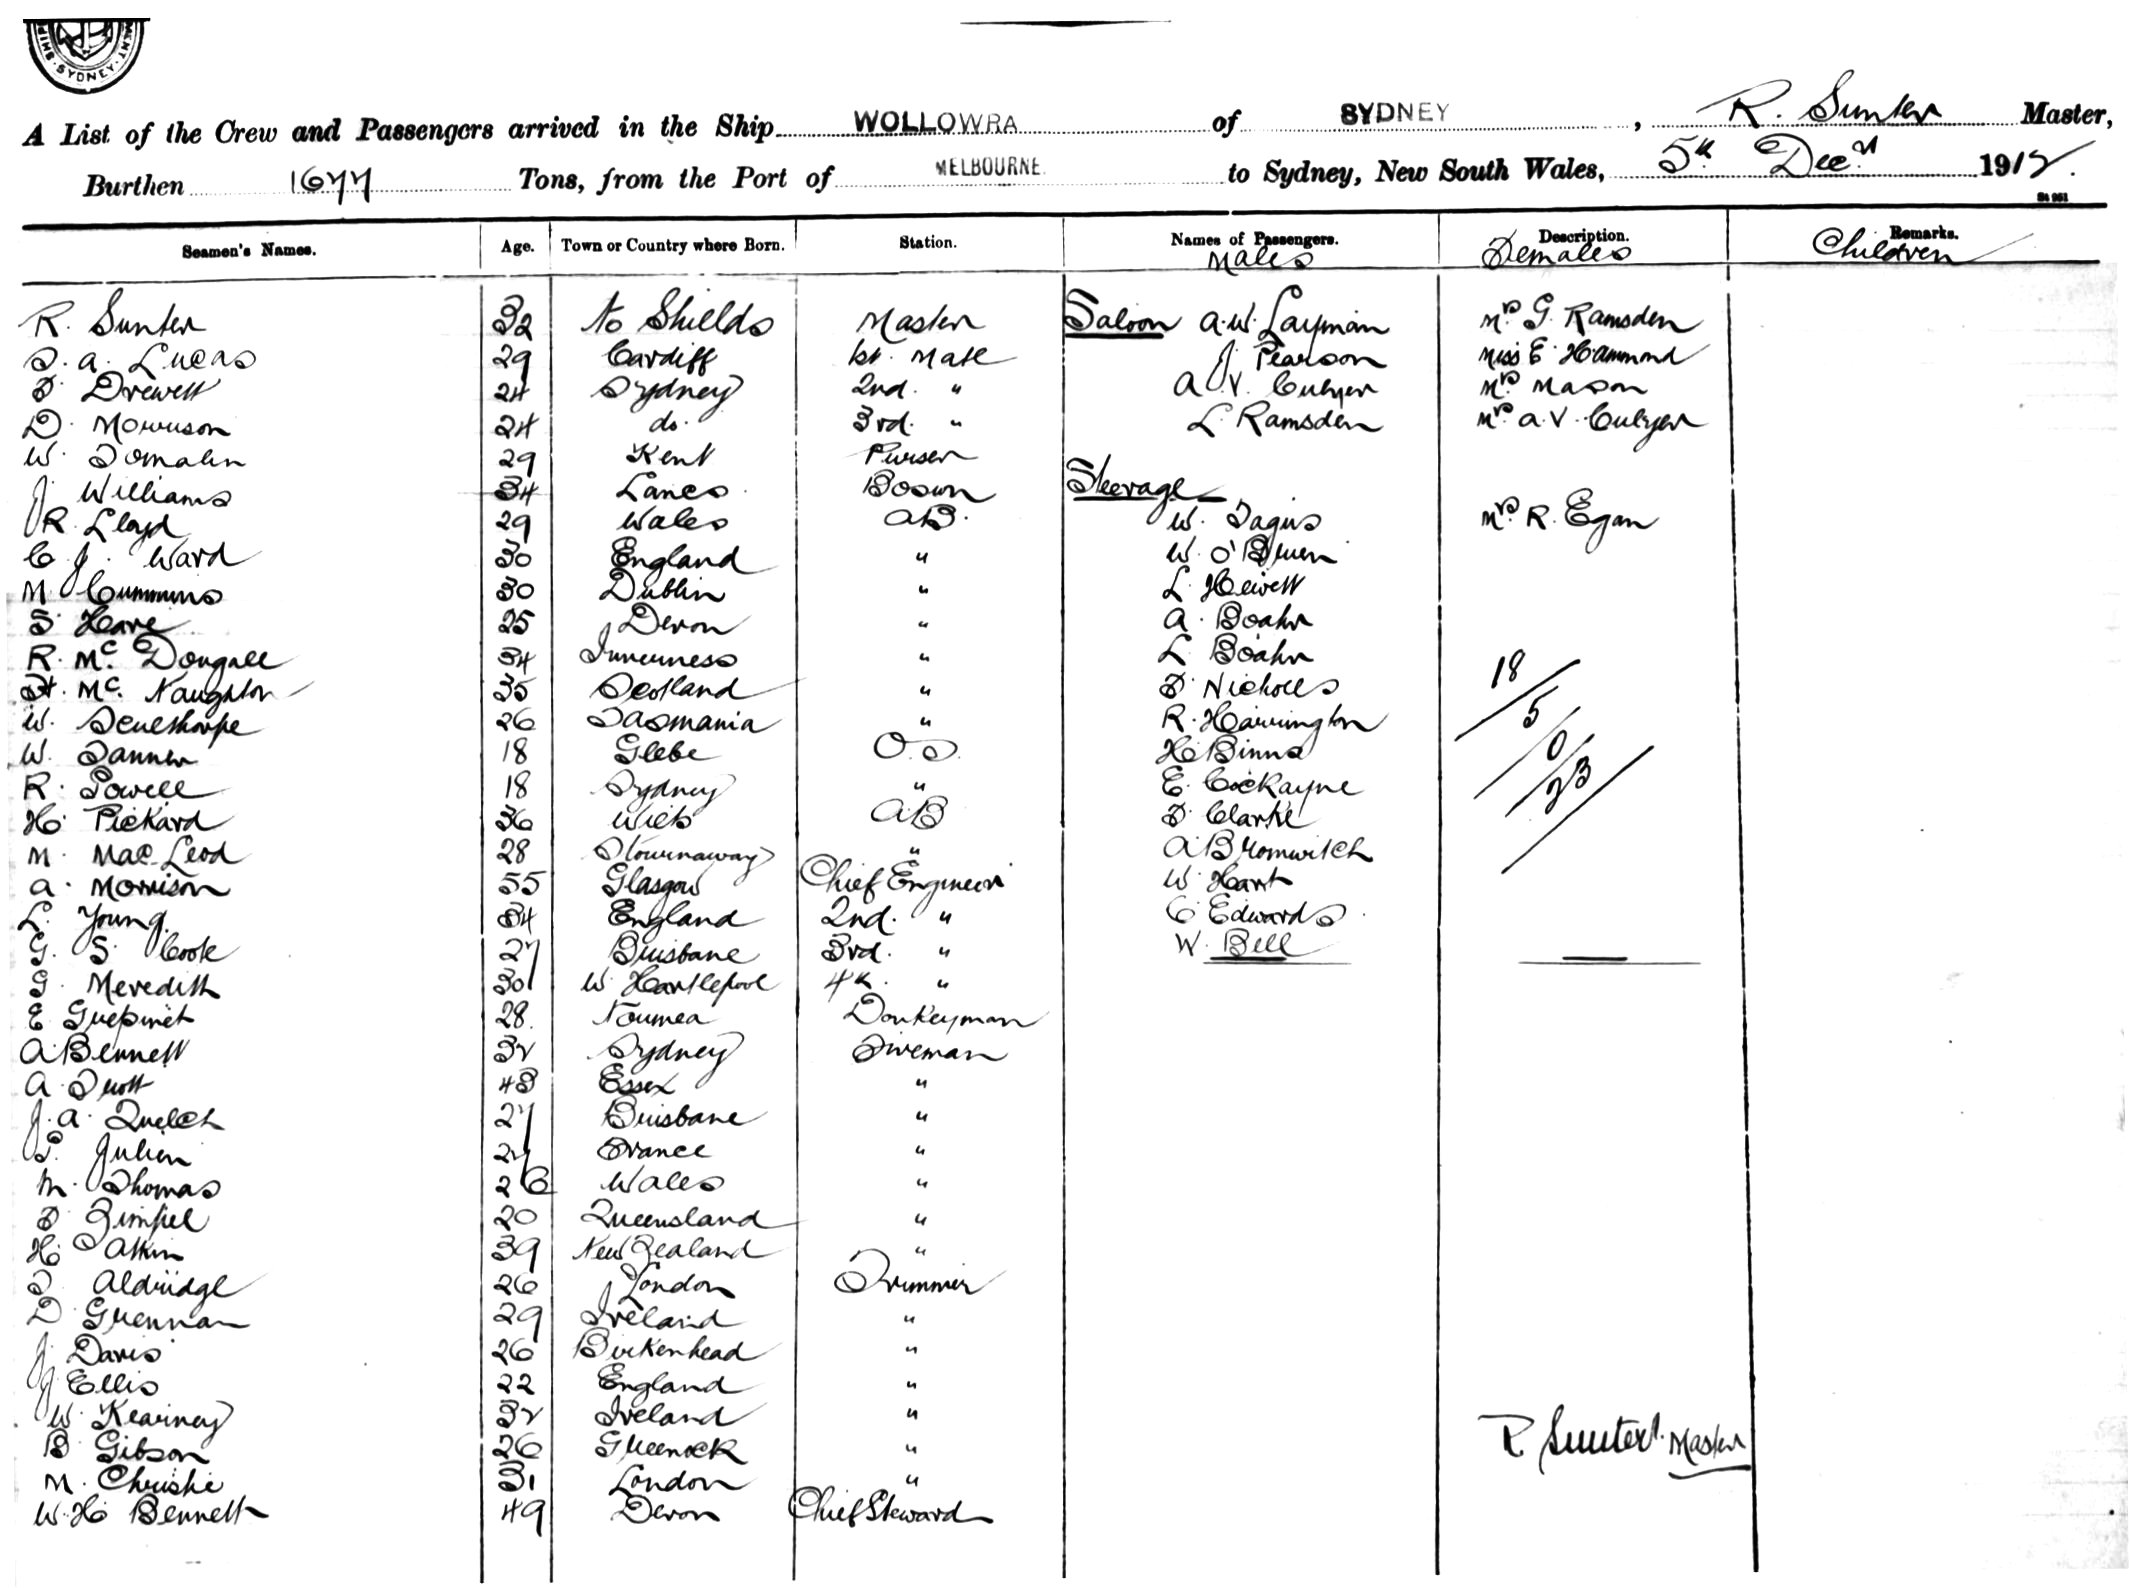 SYDNEY
A List of the Crew and Passengers arrived in the Ship WOLLOWRA of SYDNEY, R. Sunter Master,
Burthen 1677 Tons, from the Port of MELBOURNE to Sydney, New South Wales, 5th Decr 1912.
Seamen's Names. Age. Town or Country where Born. Station. Names of Passengers. Description. Remarks.
Males Females Children
R. Sunter 32 No Shields Master Saloon A.W. Layman Mrs G. Ramsden
S. A. Lucas 29 Cardiff 1st. Mate J. Pearson Miss E Hammond
F Drewett 24 Sydney 2nd. " A. V. Culyer Mrs Mason
D. Morrison 24 do. 3rd. " L. Ramsden Mrs A.V. Culyer
W. Tomalin 29 Kent Purser
J. Williams 34 Lancs. Bosun Steerage
R. Lloyd 29 Wales AB. W. Mrs R. Egan
C. J. Ward 30 England " W. O'Brien
M. Cummins 30 Dublin " L. Hewett
S. Hare 25 Devon " A. Boahn
R. Mc. Dougall 34 Inverness " L. Boahn
Mc. Naughton 35 Scotland " F Nicholls 18
W. Sculthorpe 26 Tasmania " R. Harrington 5
W. Tanner 18 Glebe O.S. H. Binns 0
R. Powell 18 Sydney " E. Cockayne 23
H. Pickard 36 Wick AB F Clarke
M. MacLeod 28 Stournaway " A Bromwitch
A. Morrison 55 Glasgow Chief Engineer W. Hart
L. Young 34 England 2nd. " C Edwards
G. S. Cook 27 Brisbane 3rd. " W. Bell
G. Meredith 30 W. Hartlepool 4th. "
E Guepinet 28. Noumea Donkeyman
A Bennett 32 Sydney Fireman
A. 43 Essex "
J. A. Quelch 27 Brisbane "
P. Julien 27 France "
M. Thomas 26 Wales "
F Zimpel 20 Queensland "
H. Atkin 39 New Zealand "
T. Aldridge 26 London Trimmer
D Grennan 29 Ireland "
J. Davis 26 Birkenhead "
J Ellis 22 England "
W. Kearney 32 Ireland "
B Gibson 26 Greenock " R. Sunter. Master
M. Christie 31 London "
W. H. Bennett 49 Devon Chief Steward